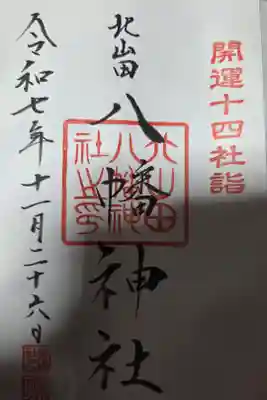 開運十四社詣
北山田
八幡神社
北山田八幡神社之印
令和七年十一月二十六日